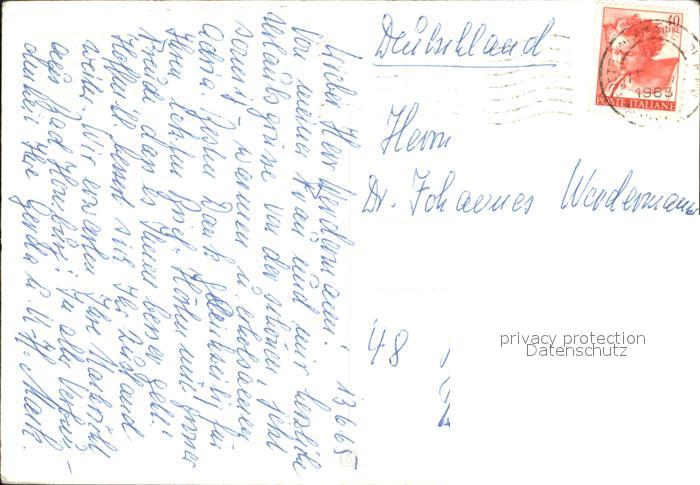 13.6.65
Lieber Herr Werdermann!
Von meiner Frau und mir herzliche
Urlaubsgrüsse von der schönen, jetzt
sonnig-warmen u. erholsamen
Adria. Besten Dank gleichzeitig für
Ihren letzten Brief. Hören mit grosser
Freude, das es Ihnen besser geht!
Hoffentl. bessert sich Ihr Zustand
weiter. Wir erwarten Ihre Nachricht
aus Bad Homburg! In alter Verbun-
denheit Ihre Gerda u. K-H. Mark.
Deutschland
Herrn
Dr. Johannes Werdermann
48
40
POSTE ITALIANE
1965
privacy protection
Datenschutz